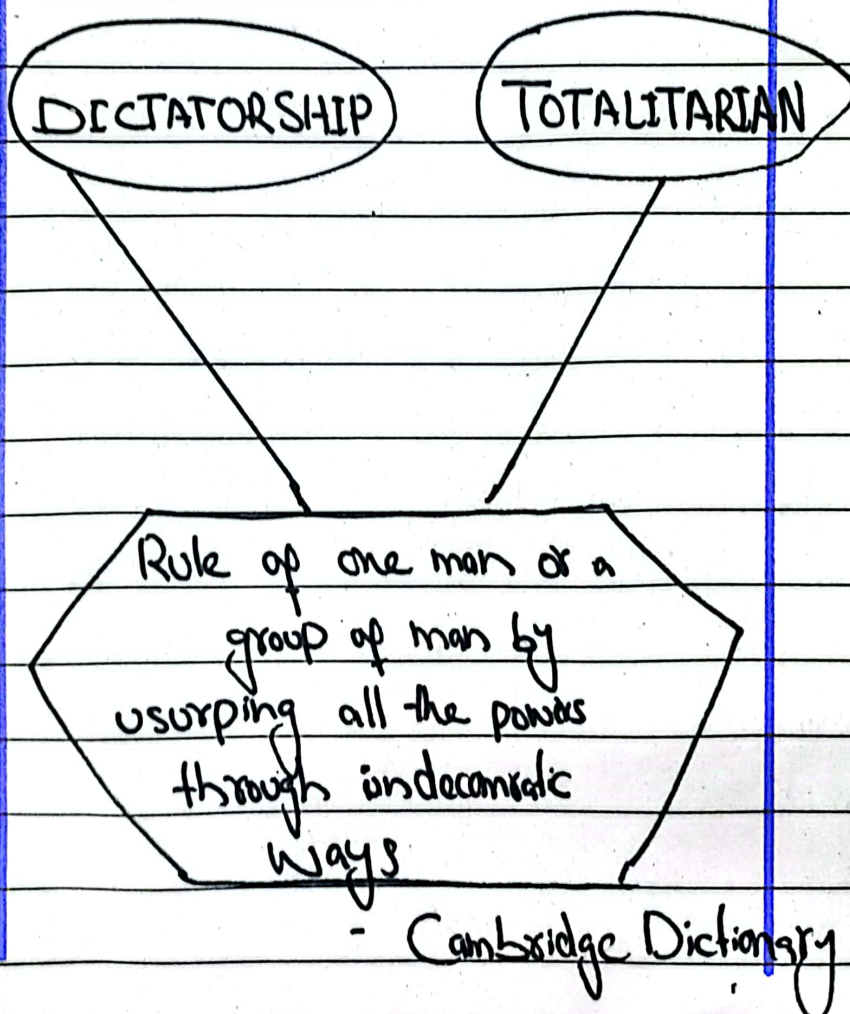 DICTATORSHIP
TOTALITARIAN
Rule of one man or a
group of man by
usurping all the powers
through undecomratic
ways
- Cambridge Dictionary